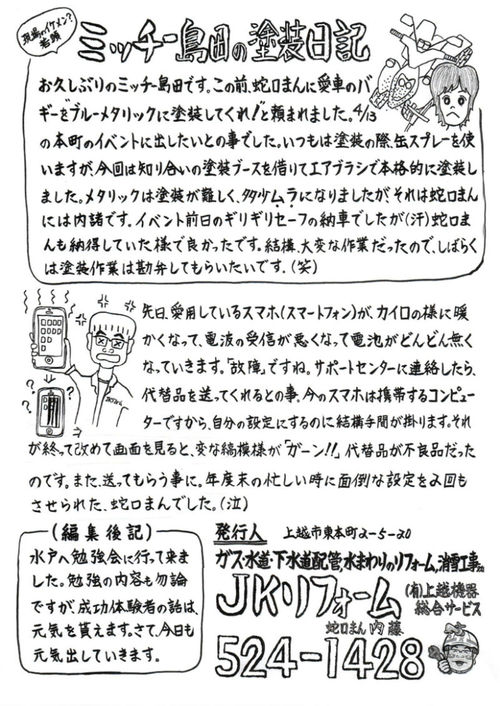 現場のイケメン?
若頭
ミッチー島田の塗装日記
お久しぶりのミッチー島田です。この前、蛇口まんに愛車のバ
ギーを"ブルーメタリックに塗装してくれ!"と頼まれました。4/13
の本町のイベントに出したいとの事でした。いつもは塗装の際、缶スプレーを使
いますが、今回は知り合いの塗装ブースを借りてエアブラシで本格的に塗装し
ました。メタリックは塗装が難しく、多少ムラになりましたが、それは蛇口まん
には内諸です。イベント前日のギリギリセーフの納車でしたが(汗)蛇口ま
んも納得していた様で良かったです。結構、大変な作業だったので、しばらく
は塗装作業は勘弁してもらいたいです。(笑)
先日、愛用しているスマホ(スマートフォン)が、カイロの様に暖
かくなって、電波の受信が悪くなって電池がどんどん無く
なっていきます。「故障」ですね。サポートセンターに連絡したら、
代替品を送ってくれるとの事、今のスマホは携帯するコンピュー
ターですから、自分の設定にするのに結構手間が掛ります。それ
が終って改めて画面を見ると、変な縞模様が「ガーン!!」代替品が不良品だった
のです。また、送ってもらう事に。年度末の忙しい時に面倒な設定を2回も
させられた、蛇口まんでした。(泣)
(編集後記)
水戸へ勉強会に行って来ま
した。勉強の内容も勿論
ですが、成功体験者の話は、
元気を貰えます。さて、今日も
元気出していきます。
発行人 上越市東本町2-5-20
ガス・水道・下水道配管水まわりのリフォーム、消雪工事
JKリフォーム
(有)上越機器
総合サービス
蛇口まん内藤
524-1428